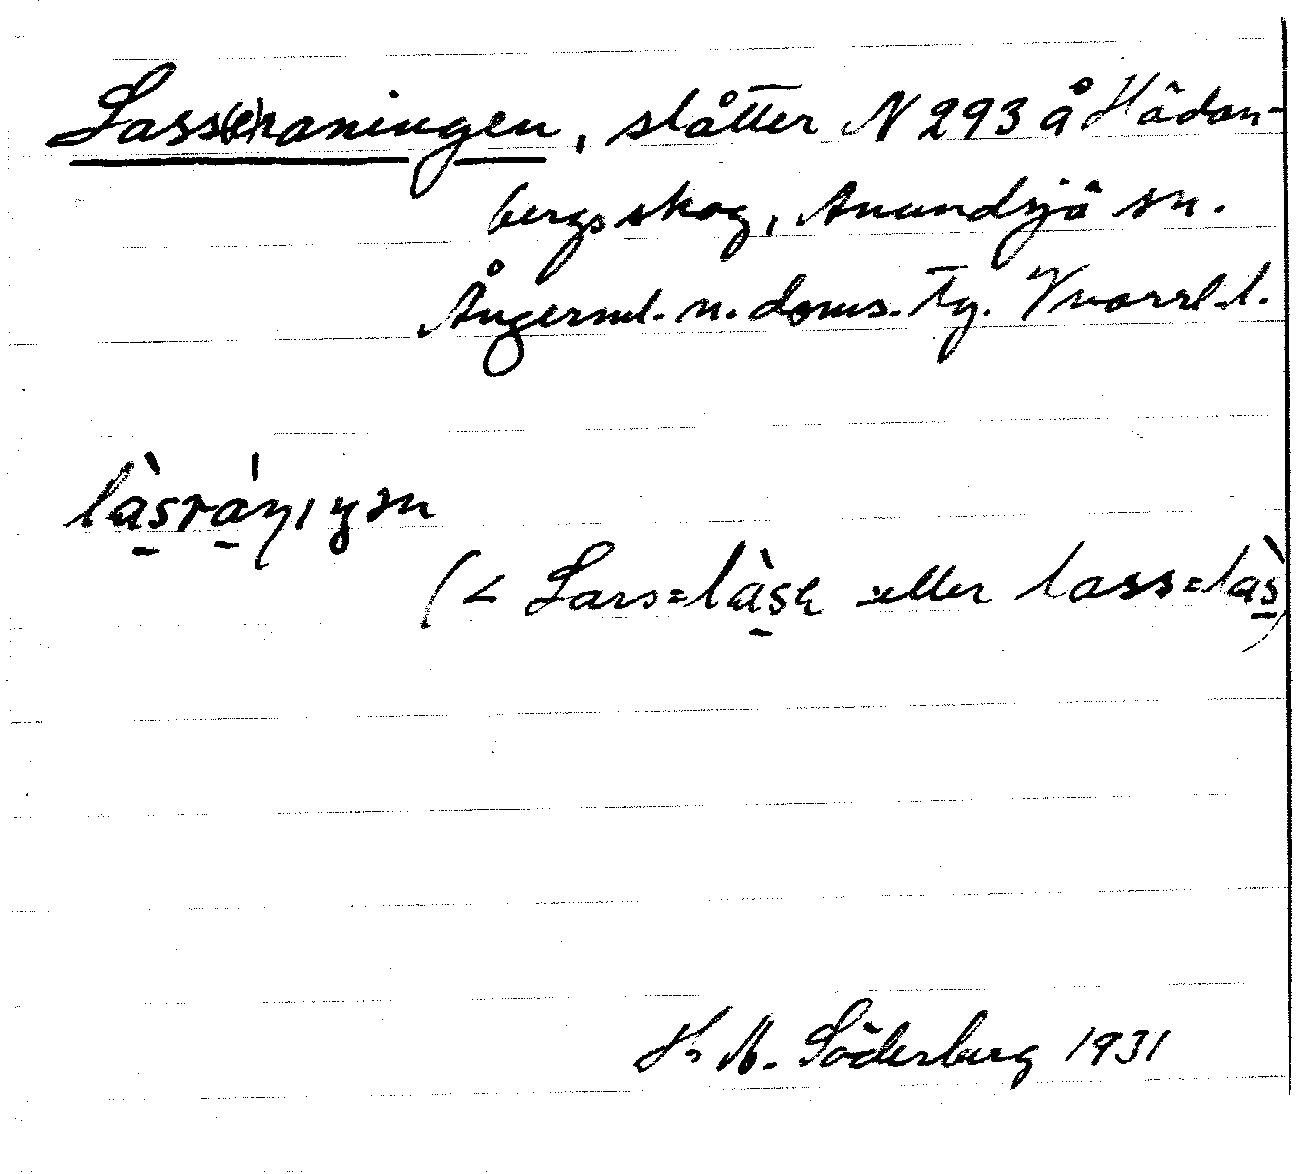 Lass(e)raningen, slåtter N 293 å Hädan-
bergs skog, Anundsjö sn.
Ångerml. n. doms. Tg. Kvarsl. l.
làsráŋıŋən
(< Lars=làsɐ eller lass=làs)
K. A. Söderberg 1931